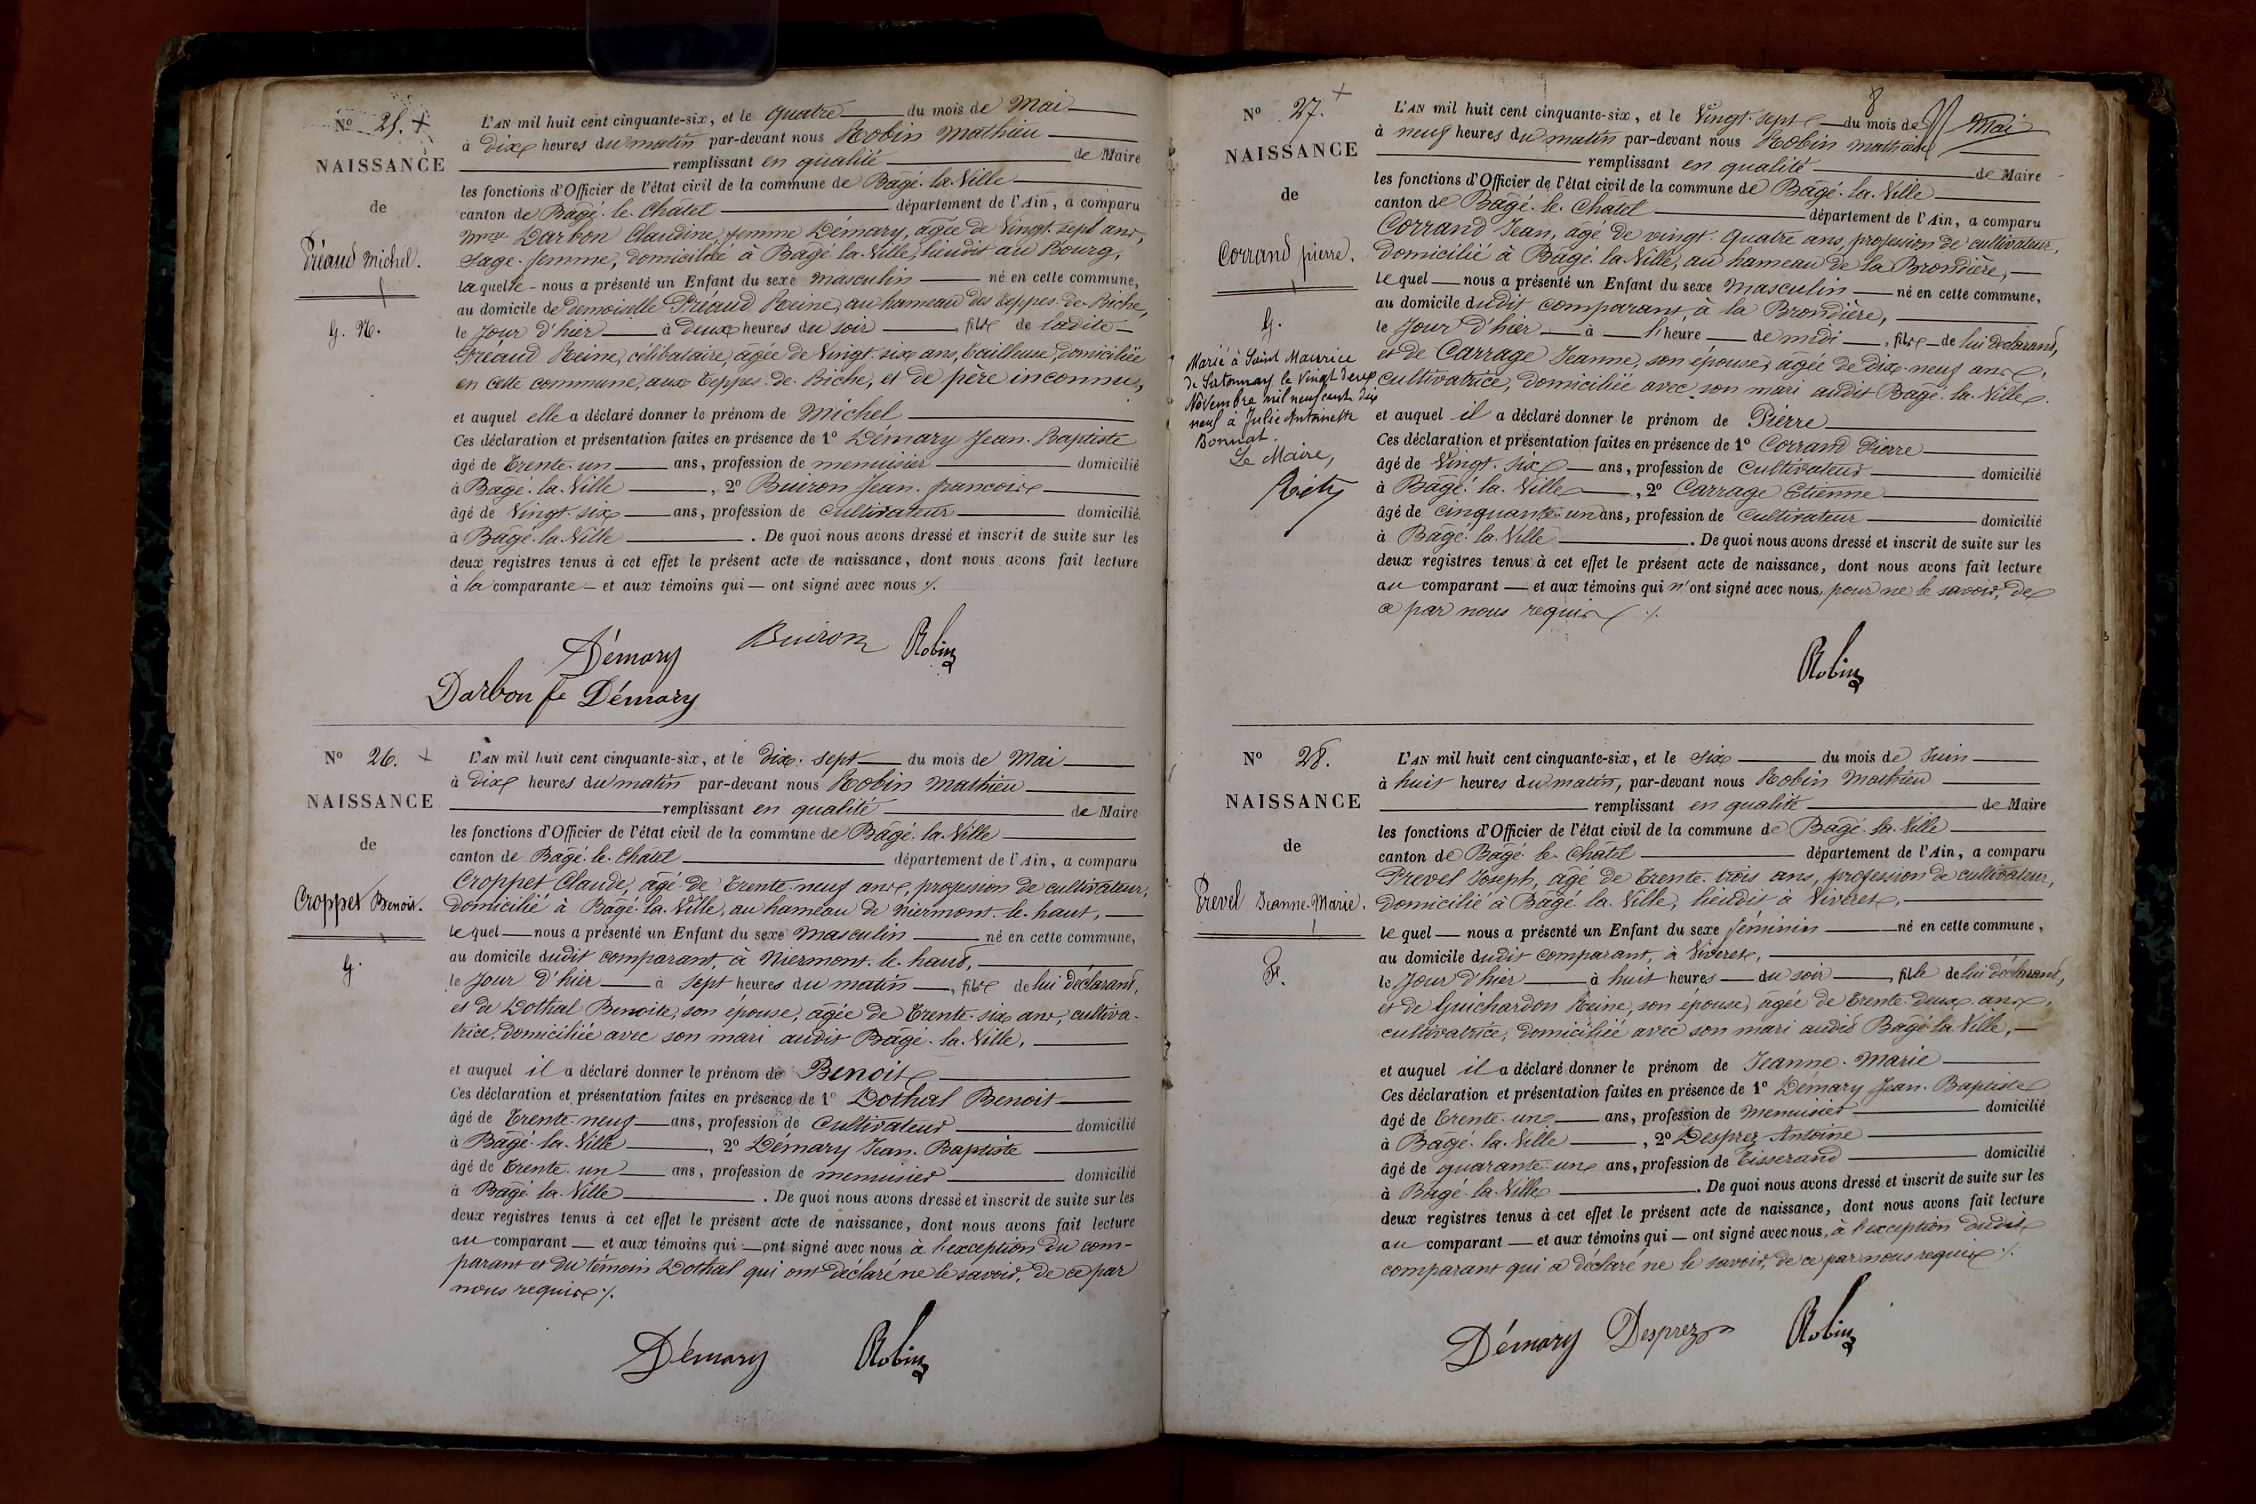 Nº 25. +
NAISSANCE
de
Préaud Michel.
G. N.
L'AN mil huit cent cinquante-six, et le quatre du mois de Mai
à dix heures du matin par-devant nous Robin Mathieu
remplissant en qualité de Maire
les fonctions d'Officier de l'état civil de la commune de Bâgé-la-Ville
canton de Bâgé-le-Châtel département de l'Ain, a comparu
Mme Darbon Claudine, femme Démary, âgée de Vingt-sept ans,
Sage-femme, domiciliée à Bâgé-la-Ville, lieudit au Bourg,
laquelle nous a présenté un Enfant du sexe masculin né en cette commune,
au domicile de demoiselle Préaud Reine, au hameau des teppes-de-Biche,
le Jour d'hier à deux heures du soir, fils de ladite
Préaud Reine, célibataire, âgée de Vingt-six ans, tailleuse, domiciliée
en cette commune, aux teppes-de-Biche, et de père inconnu,
et auquel elle a déclaré donner le prénom de Michel
Ces déclaration et présentation faites en présence de 1º Démary Jean-Baptiste
âgé de trente-un ans, profession de menuisier domicilié
à Bâgé-la-Ville, 2º Buiron Jean-françois
âgé de Vingt-six ans, profession de cultivateur domicilié
à Bâgé-la-Ville. De quoi nous avons dressé et inscrit de suite sur les
deux registres tenus à cet effet le présent acte de naissance, dont nous avons fait lecture
à la comparante et aux témoins qui ont signé avec nous ./.
Démary Buiron Robin
Darbon fe Démary
Nº 26. +
NAISSANCE
de
Croppet Benoit.
G.
L'AN mil huit cent cinquante-six, et le dix-sept du mois de Mai
à dix heures du matin par-devant nous Robin Mathieu
remplissant en qualité de Maire
les fonctions d'Officier de l'état civil de la commune de Bâgé-la-Ville
canton de Bâgé-le-Châtel département de l'Ain, a comparu
Croppet Claude, âgé de trente-neuf ans, profession de cultivateur,
domicilié à Bâgé-la-Ville, au hameau de Niermont-le-haut,
lequel nous a présenté un Enfant du sexe masculin né en cette commune,
au domicile dudit comparant, à Niermont-le-haut,
le Jour d'hier à sept heures du matin, fils de lui déclarant,
et de Dothal Benoite, son épouse, âgée de trente-six ans, cultiva-
trice, domiciliée avec son mari audit Bâgé-la-Ville,
et auquel il a déclaré donner le prénom de Benoit
Ces déclaration et présentation faites en présence de 1º Dothal Benoit
âgé de trente-neuf ans, profession de Cultivateur domicilié
à Bâgé-la-Ville, 2º Démary Jean-Baptiste
âgé de trente-un ans, profession de menuisier domicilié
à Bâgé-la-Ville. De quoi nous avons dressé et inscrit de suite sur les
deux registres tenus à cet effet le présent acte de naissance, dont nous avons fait lecture
au comparant et aux témoins qui ont signé avec nous à l'exception du com-
parant et du témoin Dothal qui ont déclaré ne le savoir, de ce par
nous requis ./.
Démary Robin
8
Nº 27. +
NAISSANCE
de
Corrand pierre.
G.
Marié à Saint Maurice
de Satonnay le Vingt deux
Novembre mil neuf cent dix
neuf à Julie Antoinette
Bonnat.
Le Maire,
L'AN mil huit cent cinquante-six, et le Vingt-sept du mois de Mai
à neuf heures du matin par-devant nous Robin Mathieu
remplissant en qualité de Maire
les fonctions d'Officier de l'état civil de la commune de Bâgé-la-Ville
canton de Bâgé-le-Chatel département de l'Ain, a comparu
Corrand Jean, âgé de vingt-quatre ans, profession de cultivateur,
domicilié à Bâgé-la-Ville, au hameau de la Brondière,
lequel nous a présenté un Enfant du sexe masculin né en cette commune,
au domicile dudit comparant, à la Brondière,
le Jour d'hier à l'heure de midi, fils de lui déclarant,
et de Carrage Jeanne, son épouse, âgée de dix-neuf ans,
cultivatrice, domiciliée avec son mari audit Bâgé-la-Ville.
et auquel il a déclaré donner le prénom de Pierre
Ces déclaration et présentation faites en présence de 1º Corrand Pierre
âgé de Vingt-six ans, profession de Cultivateur domicilié
à Bâgé-la-Ville, 2º Carrage Etienne
âgé de cinquante-un ans, profession de Cultivateur domicilié
à Bâgé-la-Ville. De quoi nous avons dressé et inscrit de suite sur les
deux registres tenus à cet effet le présent acte de naissance, dont nous avons fait lecture
au comparant et aux témoins qui n'ont signé avec nous, pour ne le savoir, de
ce par nous requis ./.
Robin
Nº 28.
NAISSANCE
de
Prevel Jeanne-Marie.
F.
L'AN mil huit cent cinquante-six, et le six du mois de Juin
à huit heures du matin, par-devant nous Robin Mathieu
remplissant en qualité de Maire
les fonctions d'Officier de l'état civil de la commune de Bâgé-la-Ville
canton de Bâgé-le-Châtel département de l'Ain, a comparu
Prevel Joseph, âgé de trente-trois ans, profession de cultivateur,
domicilié à Bâgé-la-Ville, lieudit à Viveret,
lequel nous a présenté un Enfant du sexe féminin né en cette commune,
au domicile dudit comparant, à Viveret,
le Jour d'hier à huit heures du soir, fille de lui déclarant,
et de Guichardon Reine, son épouse, âgée de trente-deux ans,
cultivatrice, domiciliée avec son mari audit Bâgé-la-Ville,
et auquel il a déclaré donner le prénom de Jeanne-Marie
Ces déclaration et présentation faites en présence de 1º Démary Jean-Baptiste
âgé de trente-un ans, profession de menuisier domicilié
à Bâgé-la-Ville, 2º Desprez Antoine
âgé de quarante-un ans, profession de Tisserand domicilié
à Bâgé-la-Ville. De quoi nous avons dressé et inscrit de suite sur les
deux registres tenus à cet effet le présent acte de naissance, dont nous avons fait lecture
au comparant et aux témoins qui ont signé avec nous, à l'exception dudit
comparant qui a déclaré ne le savoir, de ce par nous requis ./.
Démary Desprez Robin